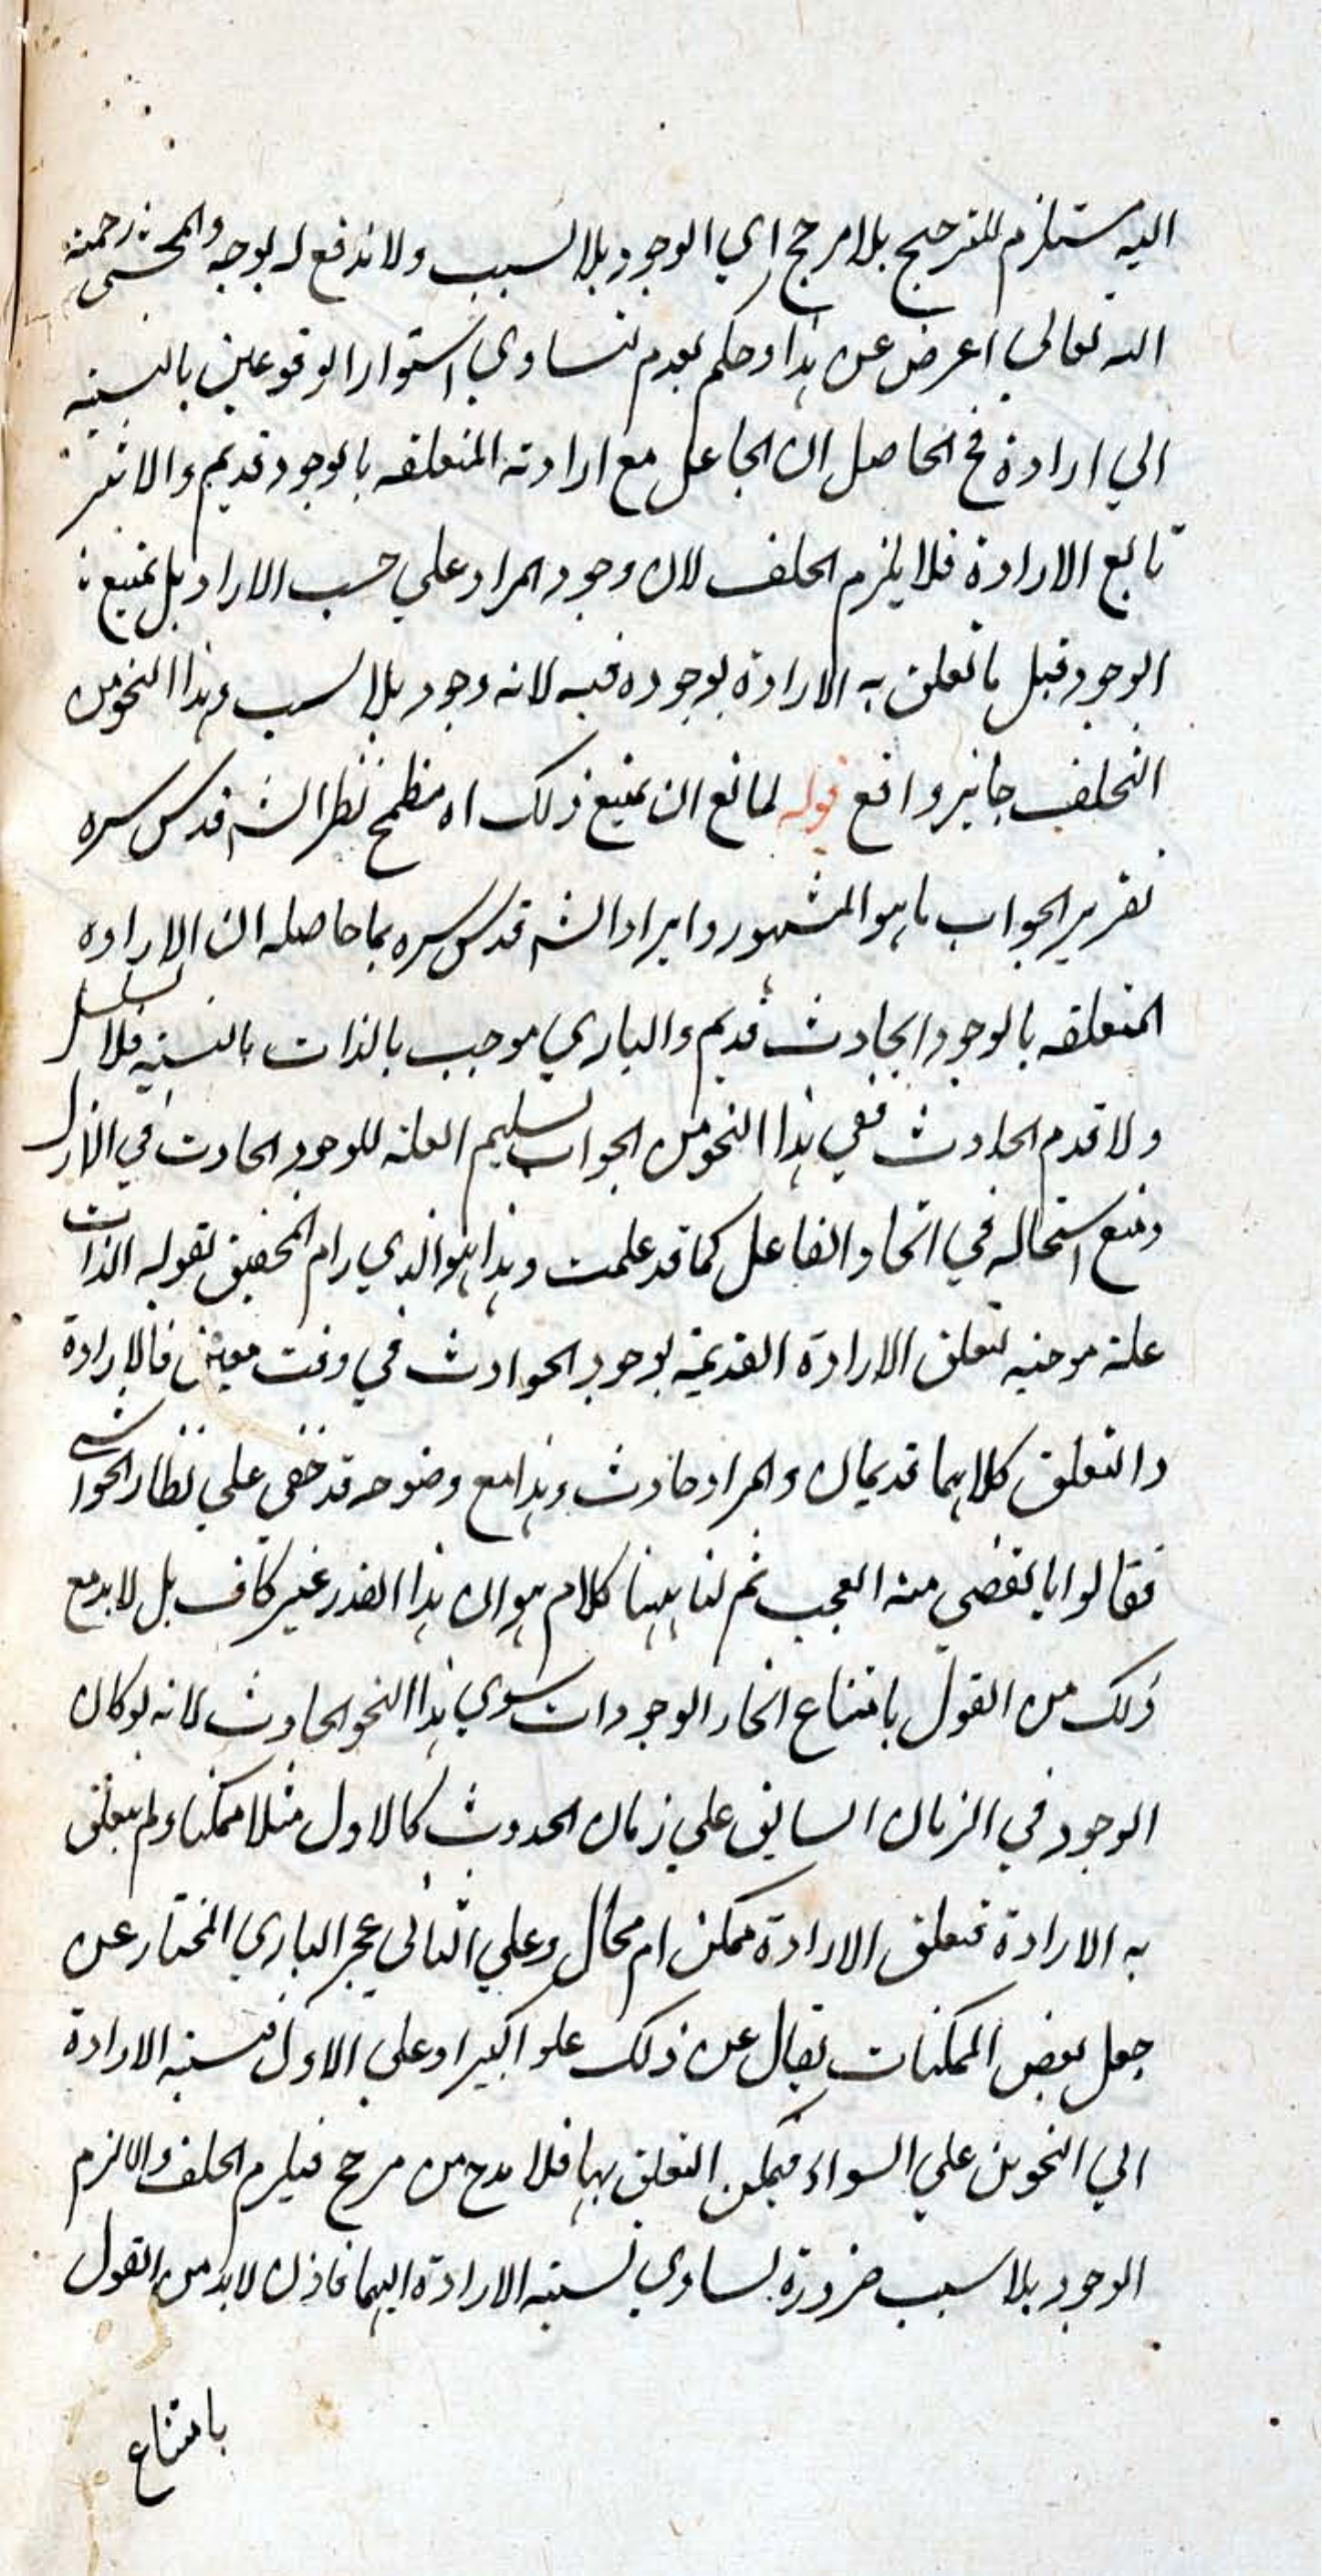 اليه مستلزم للترجيح بلا مرجح اي الوجود بلا سبب ولا ندفع له بوجه والمحشى رحمة
الله تعالي اعرض عن هذا وحكم بعدم تساوي استواء الوقوعين بالنسبة
الي ارادة فح الحاصل ان الجاعل مع ارادته المتعلقه بالوجود قديم والاثر
تابع الارادة فلا يلزم الخلف لان وجود المراد علي حسب الاراد بل يمتنع
الوجود قبل ما تعلق به الارادة بوجوده فيه لانه وجود بلا سبب وهذا النحو من
التخلف جايز واقع قوله لمانع ان يمنع ذلك اه مطمح نظر الش قدس سره
تقرير الجواب ما هو المشهور وايراد الش قدس سره بما حاصله ان الاراده
المتعلقه بالوجود الحادث قديم والباري موجب بالذات بالنسبة فلا تسلسل
ولا قدم الحادث ففي هذا النحو من الجواب تسليم العلة للوجود الحادث في الازل
ومنع استحاله في اتحاد الفاعل كما قد علمت وهذا هو الذي رام المحقق بقوله الذات
علة موجبه لتعلق الارادة القديمة بوجود الحوادث في وقت معين فالارادة
والتعلق كلاهما قديمان والمراد حادث وهذا مع وضوحه قد خفي علي نظار الحواشي
فقالوا ما يقضي منه العجب ثم لنا ههنا كلام هو ان هذا القدر غير كاف بل لا بد مع
ذلك من القول بامتناع انحاء الوجودات سوي هذا النحو الحادث لانه لو كان
الوجود في الزمان السابق علي زمان الحدوث كالاول مثلا ممكنا ولم يتعلق
به الارادة فتعلق الارادة ممكن ام محال وعلي الثاني عجز الباري المختار عن
جعل بعض الممكنات تعال عن ذلك علوا كبيرا وعلي الاول فنسبة الارادة
الي النحوين علي السواء فيمكن التعلق بهما فلا بد ح من مرجح فيلزم الخلف والا لزم
الوجود بلا سبب ضرورة تساوي نسبة الارادة اليهما فاذن لا بد من القول
بامتناع